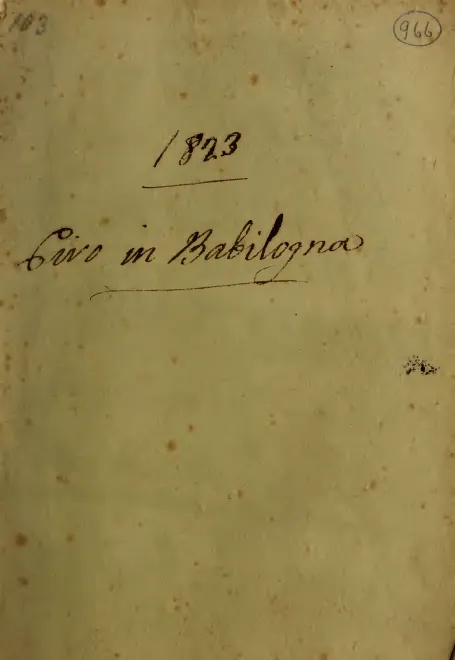 103
966
1823
Ciro in Babilogna